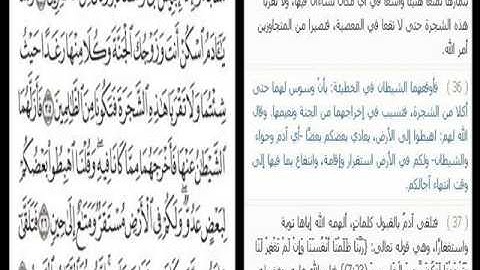 بثمارها تمتعًا هنيئًا واسعًا في أي مكان تشاءان فيها، ولا تقربا
هذه الشجرة حتى لا تقعا في المعصية، فتصيرا من المتجاوزين
أمر الله.
( 36 ) فأوقعهما الشيطان في الخطيئة: بأنْ وسوس لهما حتى
أكلا من الشجرة، فتسبب في إخراجهما من الجنة ونعيمها. وقال
الله لهم: اهبطوا إلى الأرض، يعادي بعضكم بعضًا -أي آدم وحواء
والشيطان- ولكم في الأرض استقرار وإقامة، وانتفاع بما فيها إلى
وقت انتهاء آجالكم.
( 37 ) فتلقى آدمُ بالقبول كلماتٍ، ألهمه الله إياها توبة
واستغفارًا، وهي قوله تعالى: {رَبَّنَا ظَلَمْنَا أَنْفُسَنَا وَإِنْ لَمْ تَغْفِرْ لَنَا
يَٰٓـَٔادَمُ ٱسْكُنْ أَنتَ وَزَوْجُكَ ٱلْجَنَّةَ وَكُلَا مِنْهَا رَغَدًا حَيْثُ
شِئْتُمَا وَلَا تَقْرَبَا هَٰذِهِ ٱلشَّجَرَةَ فَتَكُونَا مِنَ ٱلظَّٰلِمِينَ ٣٥ فَأَزَلَّهُمَا
ٱلشَّيْطَٰنُ عَنْهَا فَأَخْرَجَهُمَا مِمَّا كَانَا فِيهِ وَقُلْنَا ٱهْبِطُوا۟ بَعْضُكُمْ
لِبَعْضٍ عَدُوٌّ وَلَكُمْ فِى ٱلْأَرْضِ مُسْتَقَرٌّ وَمَتَٰعٌ إِلَىٰ حِينٍ ٣٦ فَتَلَقَّىٰٓ